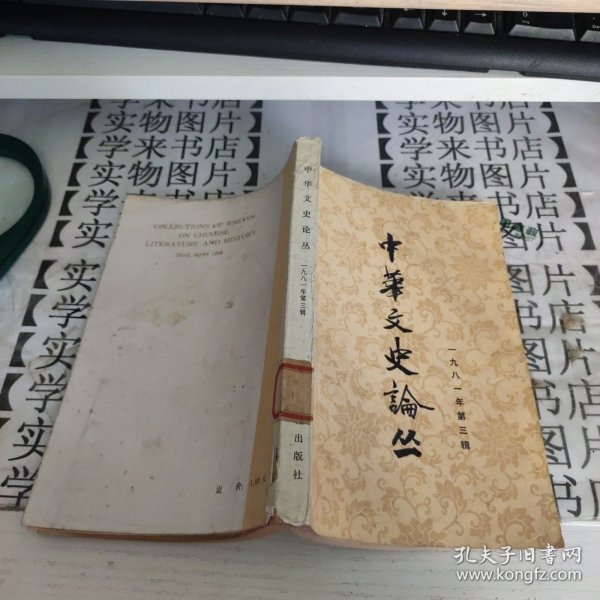 【学来书店】
【实物图片】
【学来书店】
【实物图片】
【学来书店】
【实物图片】
COLLECTIONS OF ESSAYS
ON CHINESE
LITERATURE AND HISTORY
定 价:
中华文史论丛
一九八一年第三辑
出版社
中華文史論丛
一九八一年第三辑
孔夫子旧书网
www.kongfz.com